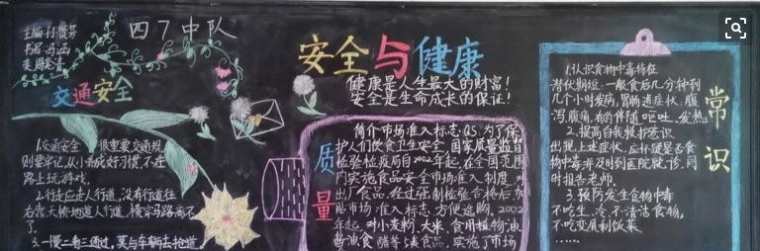 四7中队
安全与健康
健康是人生最大的财富！
安全是生命成长的保证！
交通安全
1.交通安全很重要交通规
则要牢记从小养成好习惯,不在
路上玩游戏。
2.行走应走人行道,没有行道往
右靠天桥地道人行道,横穿马路离不
了。
3.一慢二看三通过,莫与车辆去抢道。
质量
简介市场准入标志:QS:为了保
护人们饮食卫生安全,国家质量监督
检验检疫局自2002年起,在全国范围
内实施食品安全市场准入制度,对
出厂食品,经过强制检验合格后,加
贴市场准入标志,方便选购。2002
年起,对小麦粉、大米、食用植物油
酱油食醋等
实施了市场
常识
1.认识食物中毒特征
潜伏期短:一般食后几分钟到
几个小时发病,胃肠道症状,腹
泻、腹痛,有的伴随呕吐、发热
2.提高自我救护意识
出现上述症状,应怀疑是否食
物中毒,及时到医院就诊,同
时报告老师。
3.预防发生食物中毒
不吃生、冷、不清洁食物。
不吃变质剩饭菜